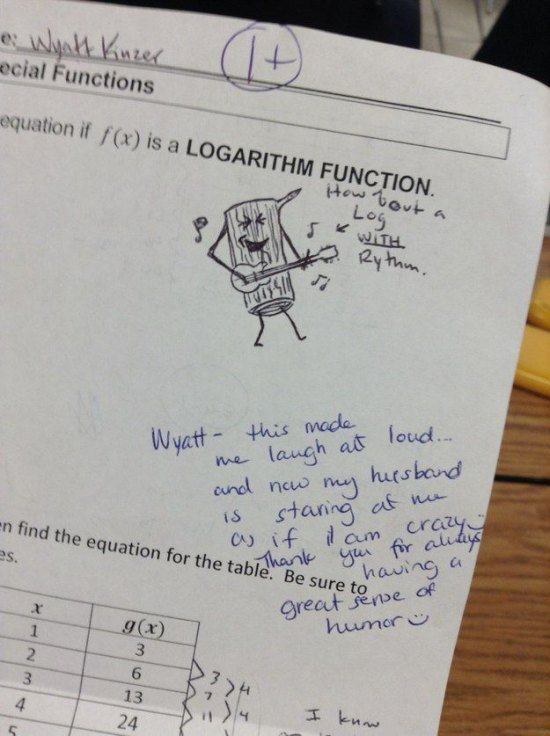 e: Wyatt Kinzer
1+
ecial Functions
equation if f(x) is a LOGARITHM FUNCTION.
How 'bout a
Log
WITH
Rythm.
Wyatt - this made
me laugh at loud...
and now my husband
is staring at me
as if I am crazy
Thank you for always
having a
great sense of
humor
n find the equation for the table. Be sure to
es.
x g(x)
1 3
2 6
3 13
4 24
5
3
7
11
4
4
I know